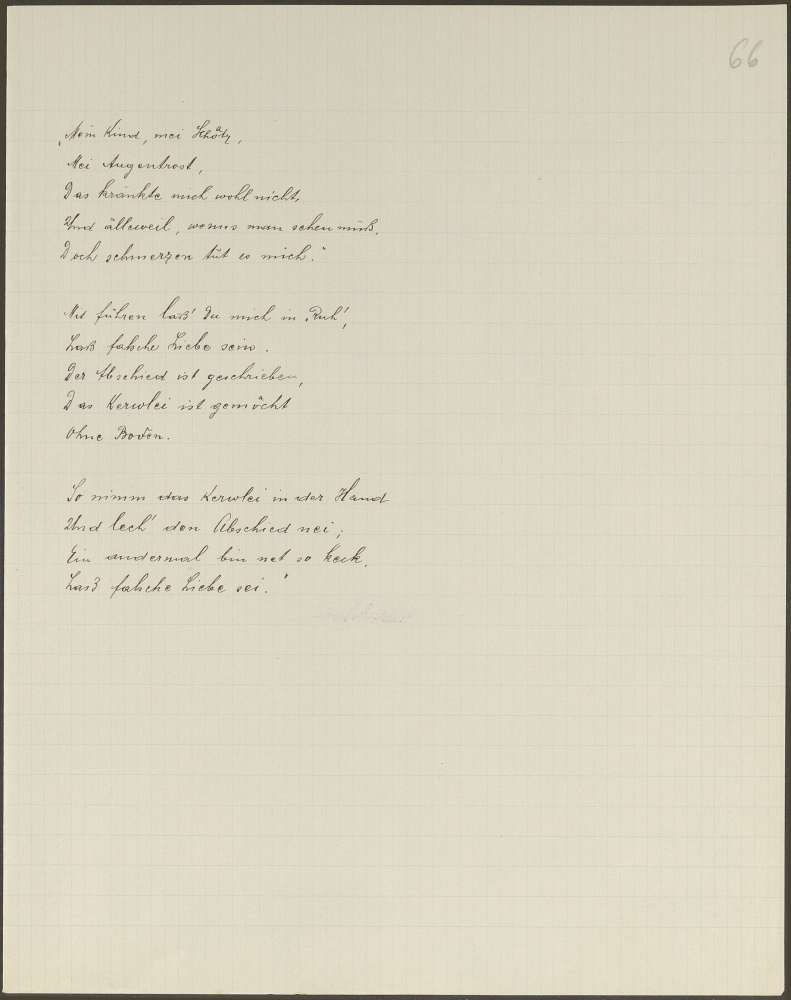 66
„Mein Kind, mei Schåtz,
Mei Augentrost,
Das kränkte mich wohl nicht,
Und ålleweil, wenns man sehen muß,
Doch schmerzen tut es mich."
Mit führen laß' Du mich in Ruh',
Laß falsche Liebe sein.
Der Abschied ist geschrieben,
Das Kerwlei ist gemöcht
Ohne Boden.
So nimm das Kerwlei in der Hand
Und lech' den Abschied nei;
Ein andermal bin net so keck,
Laß falsche Liebe sei."